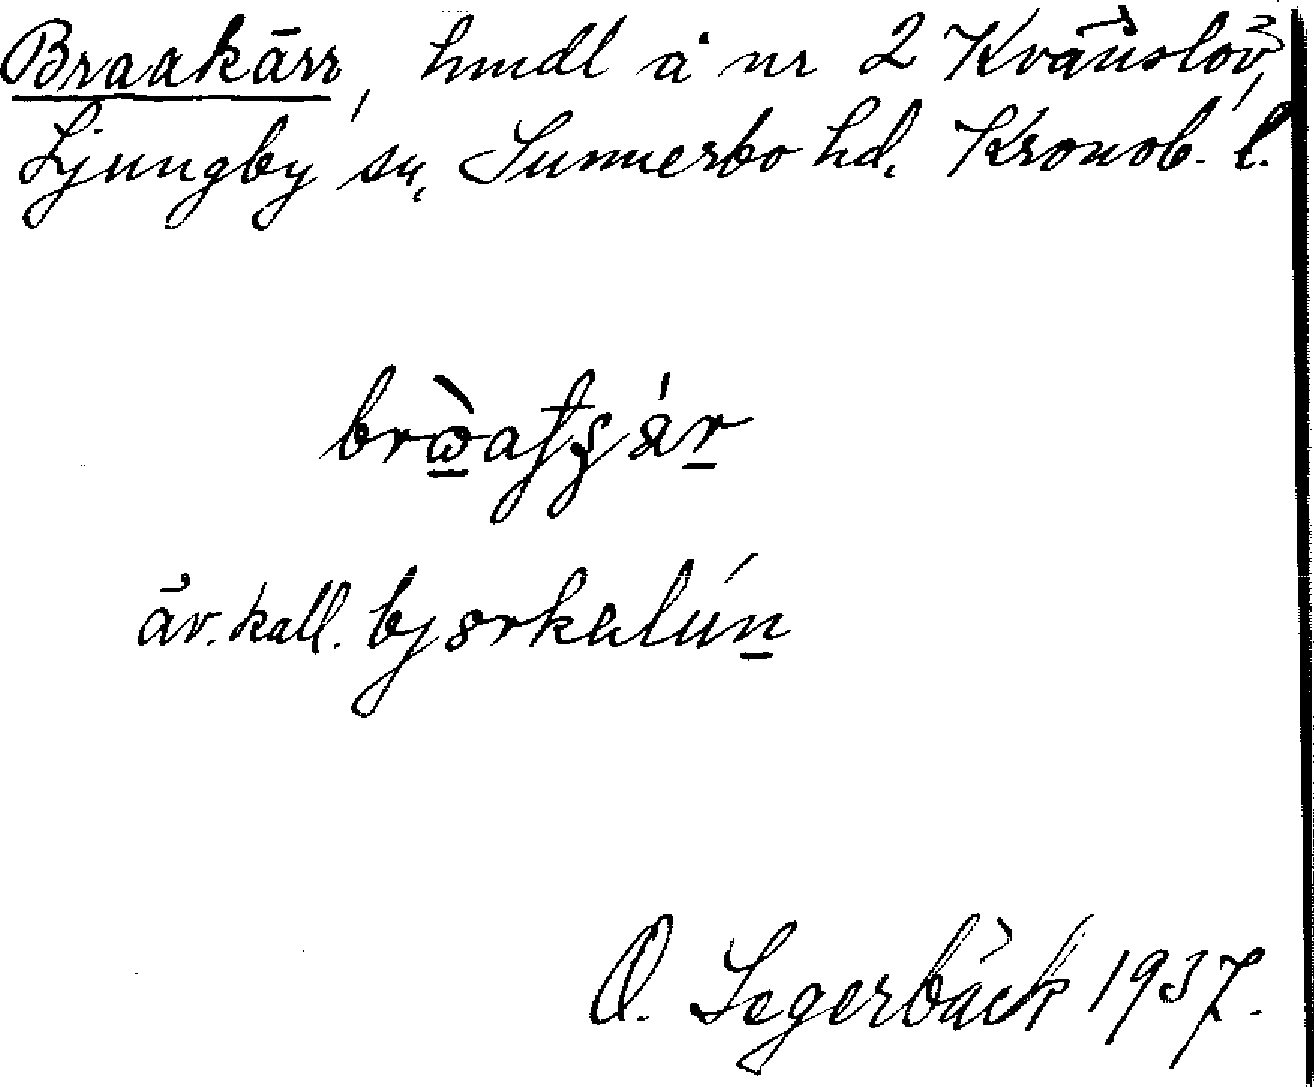 Braakärr, hmdl å nr 2 Kvänslöv,
Ljungby sn, Sunnerbo hd. Kronob. l.
äv. kall.
O. Segerbäck 1937.